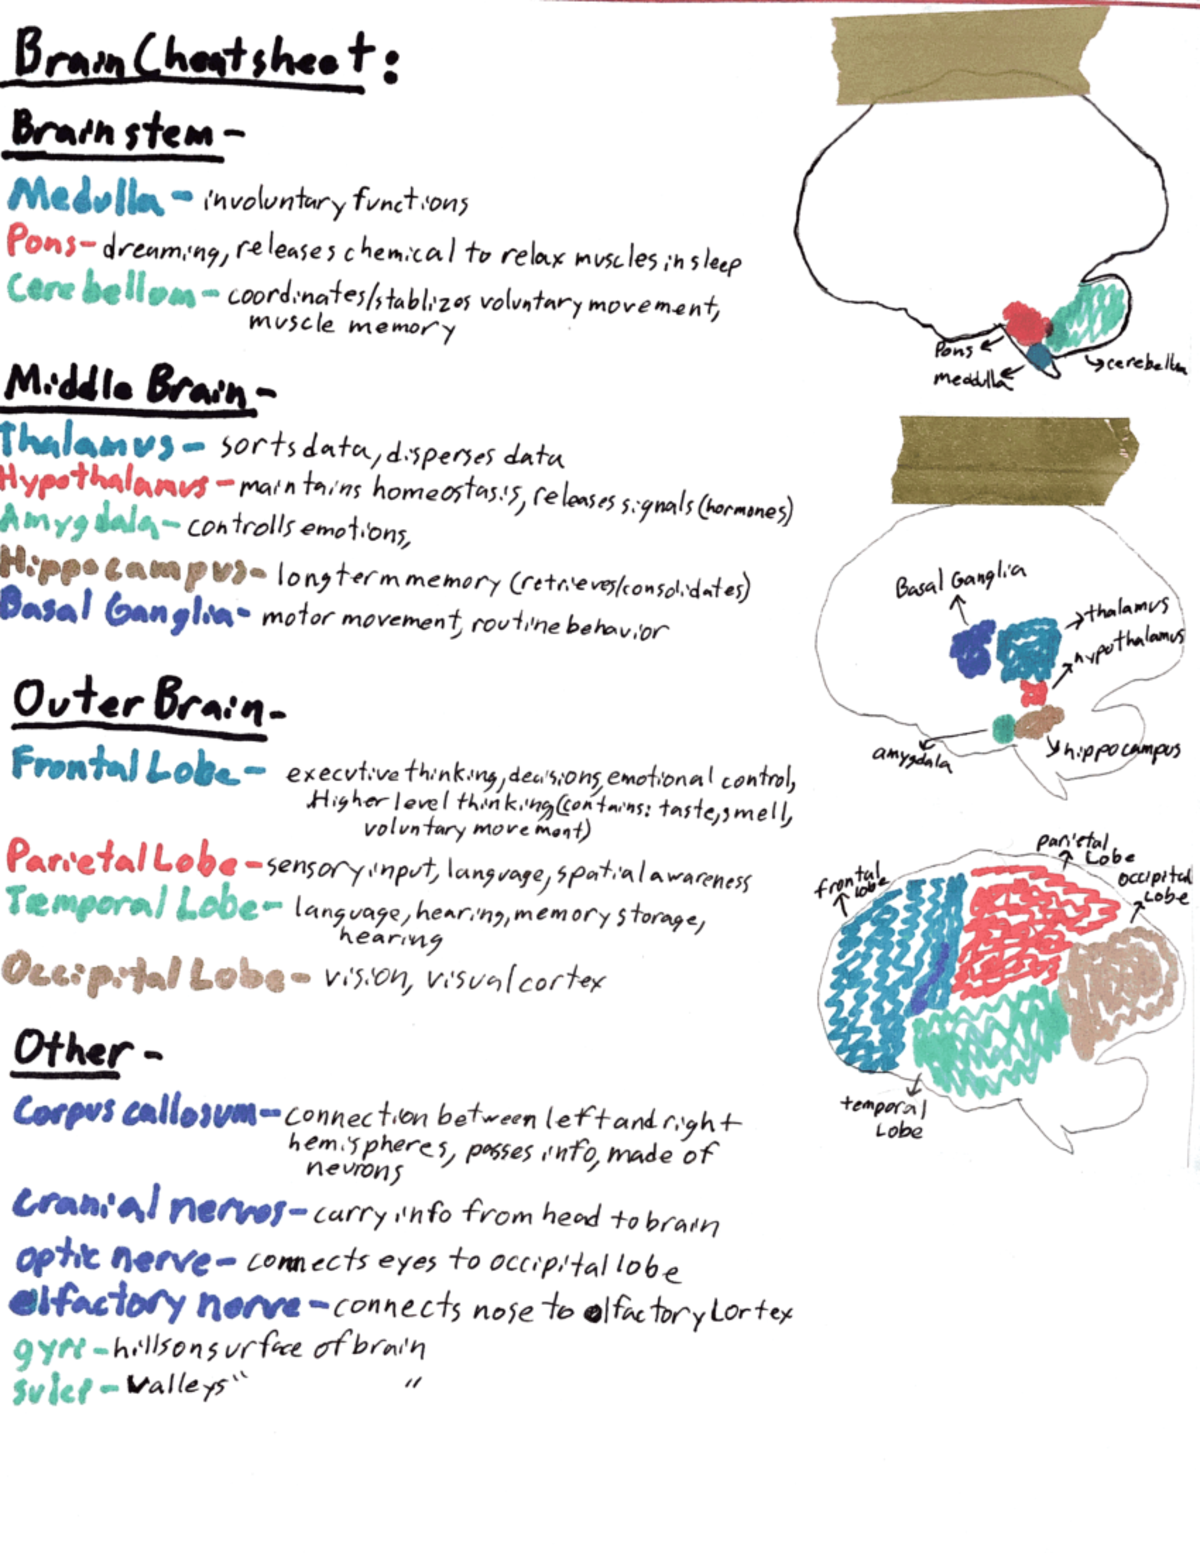 Brain Cheatsheet:
Brain stem -
Medulla - involuntary functions
Pons - dreaming, releases chemical to relax muscles in sleep
Cerebellum - coordinates/stablizes voluntary movement,
muscle memory
Middle Brain -
Thalamus - sorts data, disperses data
Hypothalamus - maintains homeostasis, releases signals (hormones)
Amygdala - controlls emotions,
Hippocampus - long term memory (retrieves/consolidates)
Basal Ganglia - motor movement, routine behavior
Outer Brain -
Frontal Lobe - executive thinking, decisions, emotional control,
Higher level thinking (contains: taste, smell,
voluntary movement)
Parietal Lobe - sensory input, language, spatial awareness
Temporal Lobe - language, hearing, memory storage,
hearing
Occipital Lobe - vision, visual cortex
Other -
Corpus callosum - connection between left and right
hemispheres, passes info, made of
neurons
Cranial nerves - carry info from head to brain
optic nerve - connects eyes to occipital lobe
olfactory nerve - connects nose to olfactory Cortex
gyri - hills on surface of brain
sulci - valleys " "
Pons
medulla
cerebellum
Basal Ganglia
thalamus
hypothalamus
amygdala
hippocampus
parietal
Lobe
frontal
lobe
occipital
Lobe
temporal
Lobe